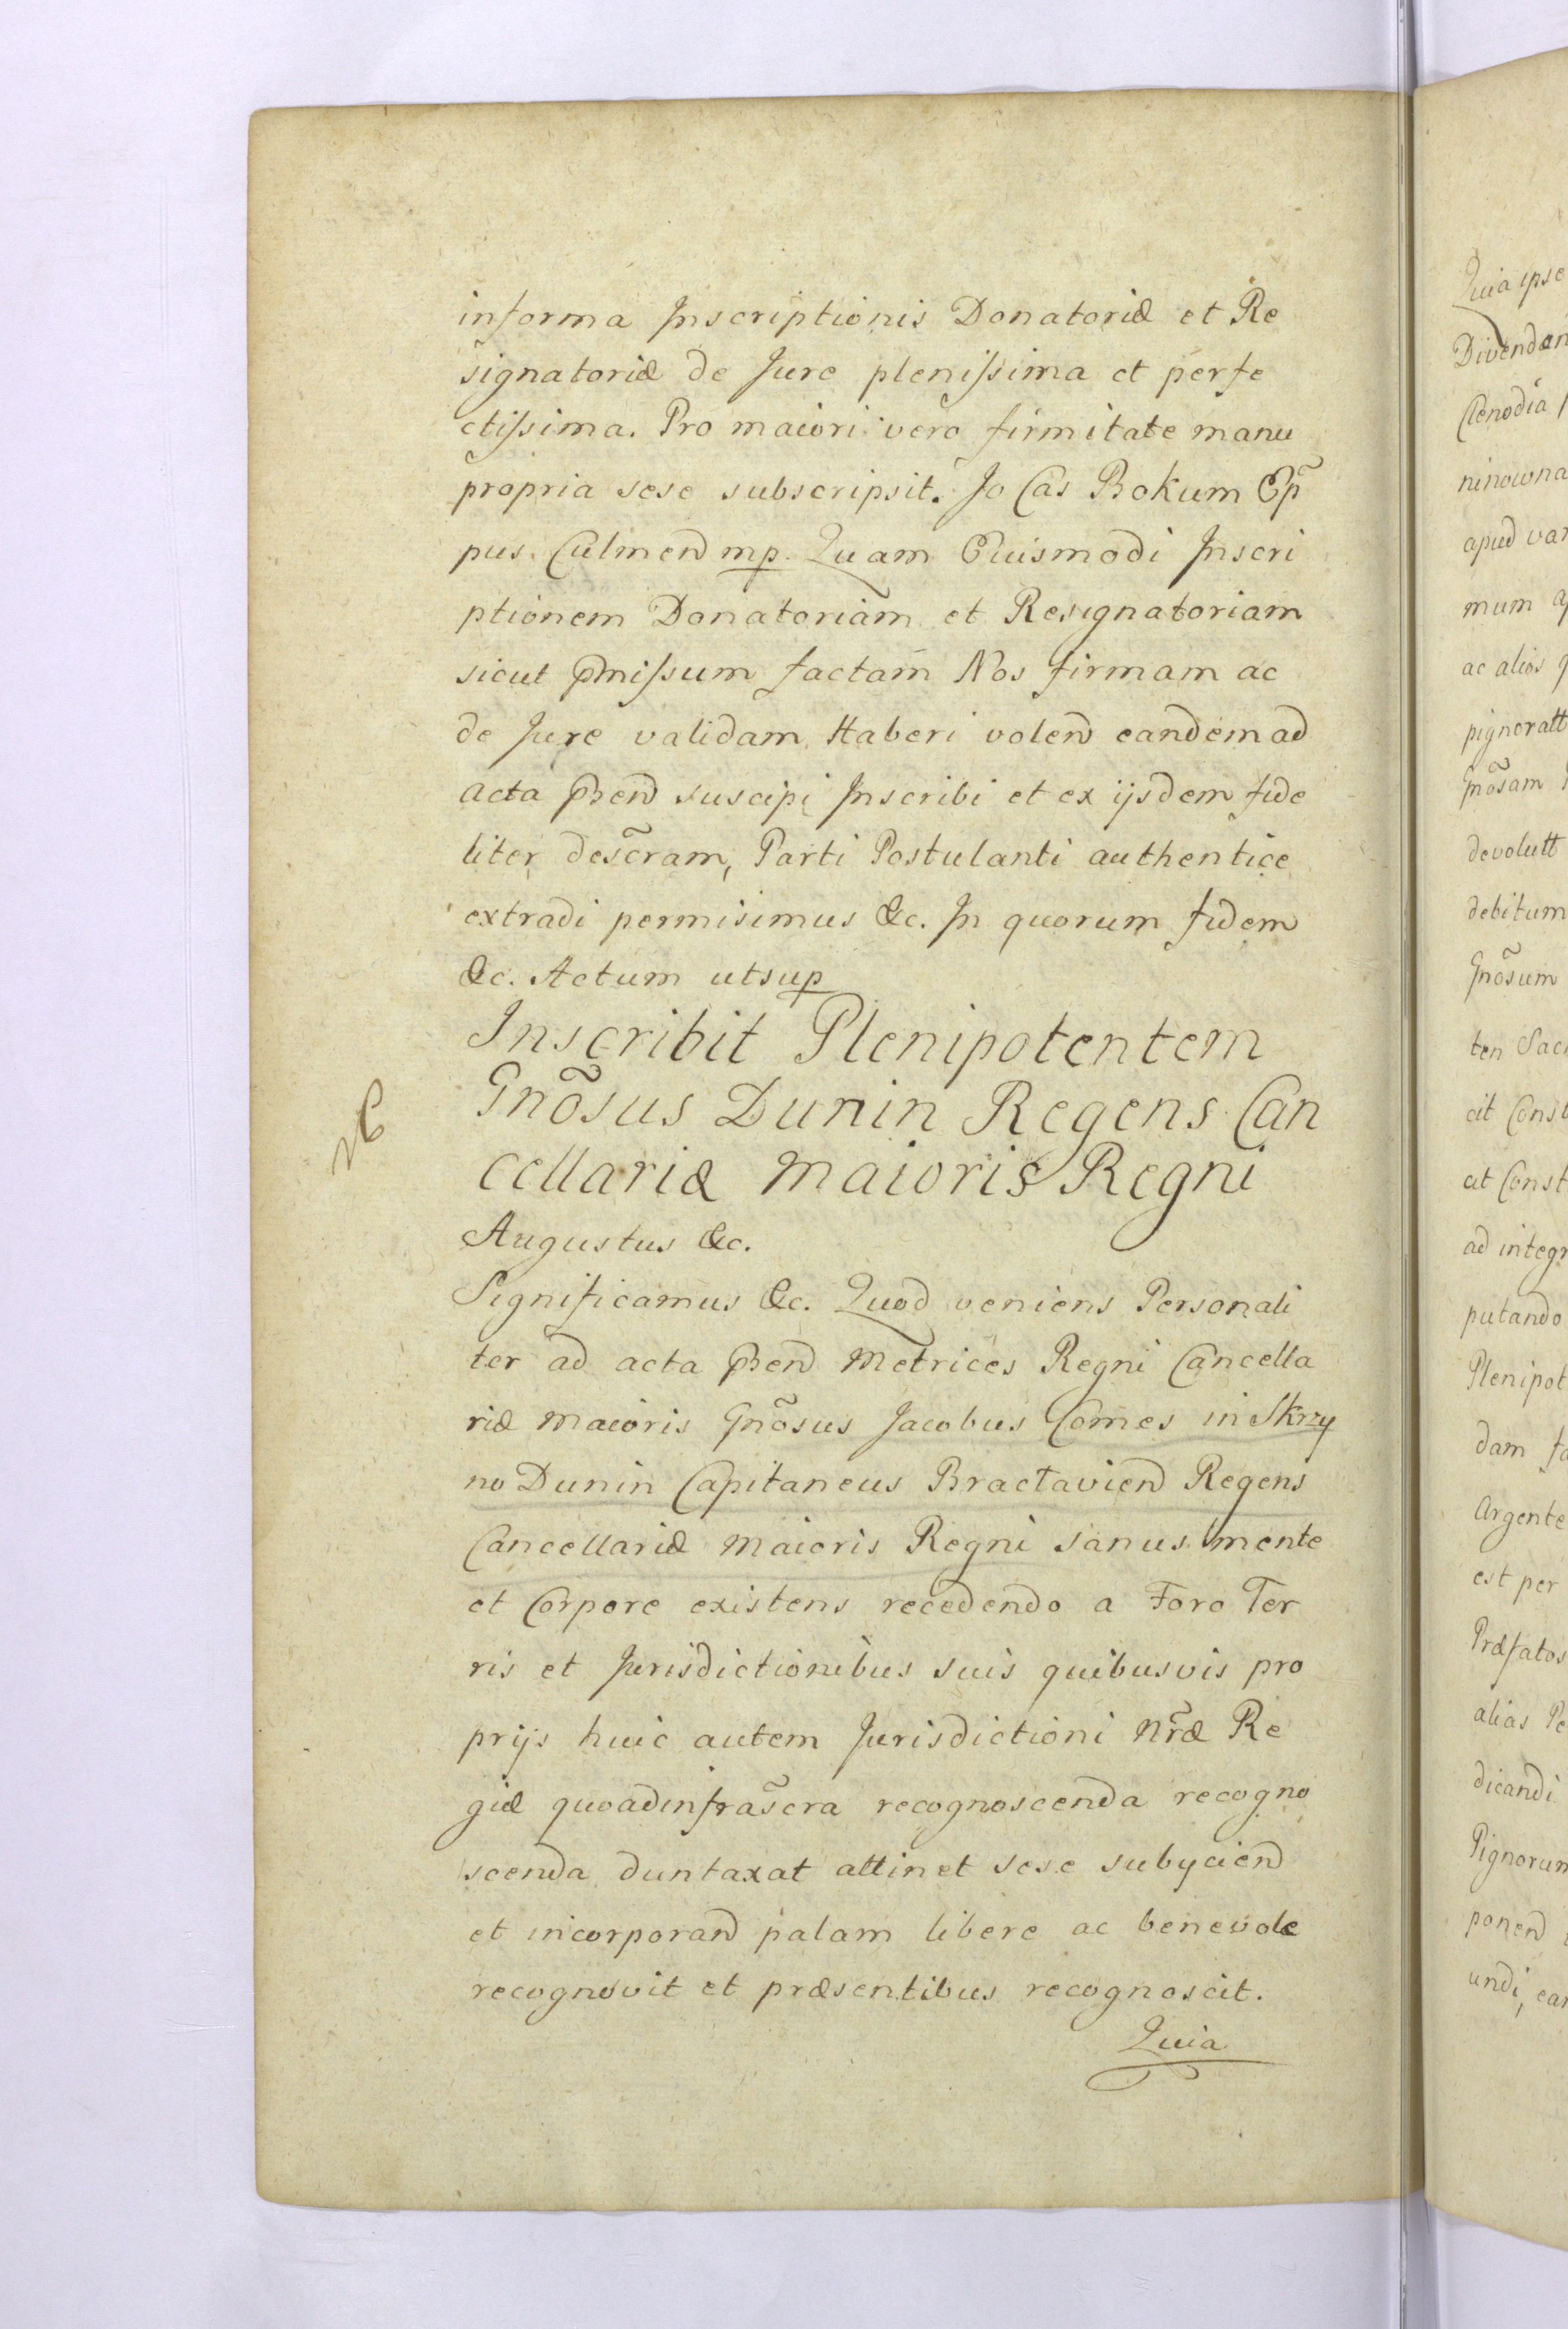 informa Inscriptionis Donatoriæ et Re
signatoriæ de Jure plenissima et perfe
ctissima. Pro maiori vero firmitate manu
propria sese subscripsit. Jo Cas Bokum Ep̃
pus Culmen mp. Quam Eiusmodi Inscri
ptionem Donatoriam et Resignatoriam
sicut pmissum factam Nos firmam ac
de Jure validam Haberi volen eandem ad
acta pnen suscipi Inscribi et ex ijsdem fide
liter desc̃ram, Parti Postulanti authentice
extradi permisimus &c. In quorum fidem
&c. Actum utsup
Inscribit Plenipotentem
Gnõsus Dunin Regens Can
cellariæ Maioris Regni
Augustus &c.
Significamus &c. Quod veniens Personali
ter ad acta pnen Metrices Regni Cancella
riæ Maioris Gnõsus Jacobus Comes in Skrzy
no Dunin Capitaneus Bractavien Regens
Cancellariæ Maioris Regni sanus mente
et Corpore existens recedendo a Foro Ter
ris et Jurisdictionibus suis quibusvis pro
prijs huic autem Jurisdictioni Nr̃æ Re
giæ quoadinfrasc̃ra recognoscenda recogno
scenda duntaxat attinet sese subycien
et incorporan palam libere ac benevole
recognovit et præsentibus recognoscit.
Quia
Quia ipse
Clenodia
apud
mum
ac alios
Gnõsam
devolutt
debitum
Gnõsum
ten
cit
ad
putando
dam
est per
Præfatos
alias
dicandi
undi,